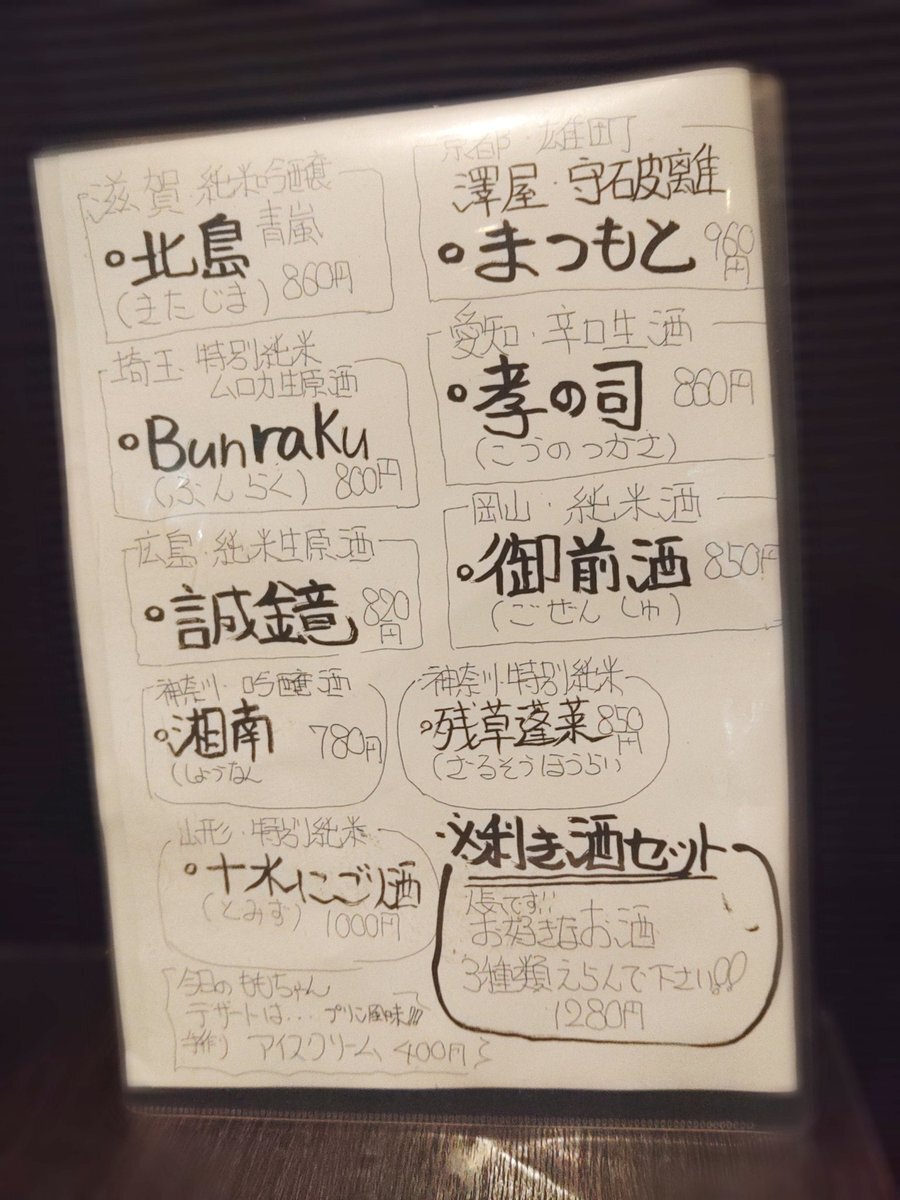 滋賀 純米吟醸
青嵐
・北島
(きたじま) 860円
京都・雄町
澤屋・守破離
・まつもと 960円
埼玉 特別純米
ムロカ生原酒
・Bunraku
(ぶんらく) 800円
愛知・辛口生酒
・孝の司 860円
(こうのつかさ)
広島・純米生原酒
・誠鏡 820円
岡山・純米酒
・御前酒 850円
(ごぜんしゅ)
神奈川・吟醸酒
・湘南 780円
(しょうなん
神奈川・特別純米
・残草蓬莱 850円
(ざるそうほうらい)
山形・特別純米
・十水にごり酒
(とみず) 1000円
※利き酒セット
お好きなお酒
3種類えらんで下さい!!
1280円
今日のももちゃん
デザートは... プリン風味!!!
手作り アイスクリーム 400円